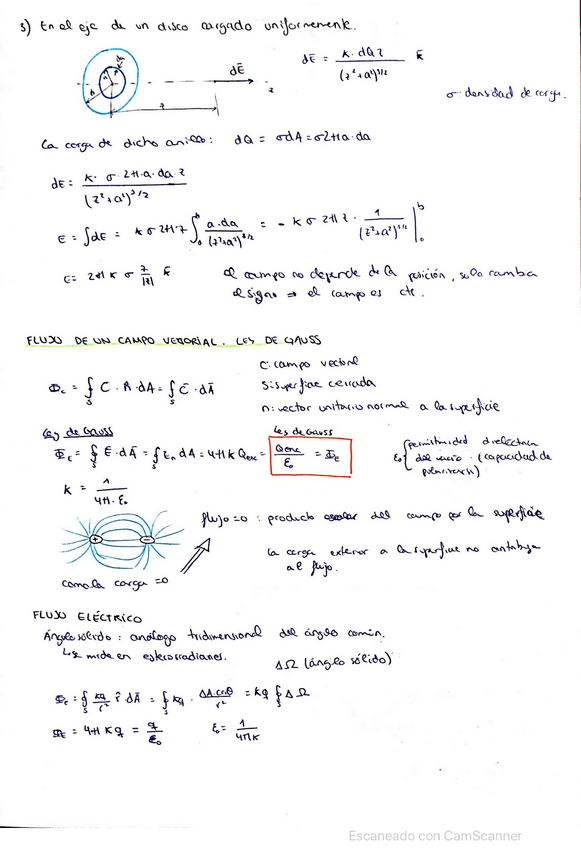 3) En el eje de un disco cargado uniformemente.
dĒ
z
b
z
dĒ = k · dQ z / (z² + a²)^3/2 k̄
σ densidad de carga.
La carga de dicho anillo: dQ = σ dA = σ 2π a · da
dE = k · σ · 2π · a · da z / (z² + a²)^3/2
E = ∫dE = k σ 2π z ∫₀ᵇ a · da / (z² + a²)^3/2 = - k σ 2π z · 1 / (z² + a²)^1/2 |₀ᵇ
E = 2π k σ z/|z| k̄
el campo no depende de la posición, solo cambia
el signo ⇒ el campo es cte.
FLUJO DE UN CAMPO VECTORIAL. LEY DE GAUSS
C: campo vectorial
Φc = ∮s C · n̂ · dA = ∮s C̄ · dĀ
S: superficie cerrada
n: vector unitario normal a la superficie
Ley de Gauss
Ley de Gauss
ΦE = ∮s E · dĀ = ∮s En dA = 4π k Qenc = Qenc / ε₀ = ΦE
ε₀ { permitividad dieléctrica
del vacío. (capacidad de
k = 1 / 4π · ε₀
+
-
flujo = 0 : producto escalar del campo por la superficie
La carga exterior a la superficie no contribuye
al flujo.
como la carga = 0
FLUJO ELÉCTRICO
Ángulo sólido : análogo tridimensional del ángulo común.
↳ se mide en estereorradianes.
ΔΩ (ángulo sólido)
ΦE = ∮s kq / r² r̂ dĀ = ∮s kq · ΔA cosθ / r² = kq ∮s ΔΩ
ΦE = 4π k q = q / ε₀
ε₀ = 1 / 4πk
Escaneado con CamScanner